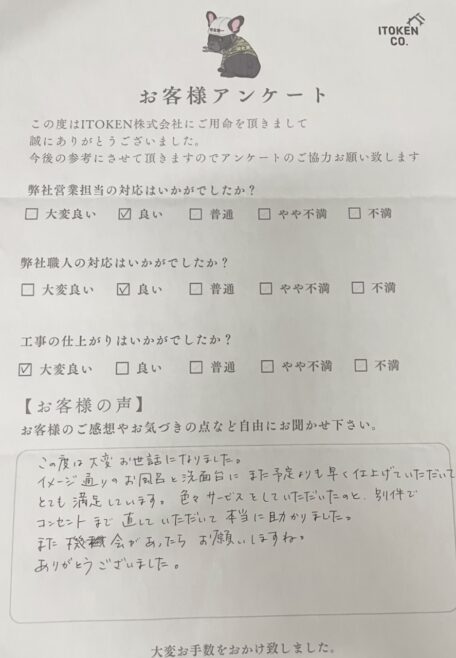 ITOKEN
CO.
お客様アンケート
この度はITOKEN株式会社にご用命を頂きまして
誠にありがとうございました。
今後の参考にさせて頂きますのでアンケートのご協力お願い致します
弊社営業担当の対応はいかがでしたか？
□ 大変良い ☑ 良い □ 普通 □ やや不満 □ 不満
弊社職人の対応はいかがでしたか？
□ 大変良い ☑ 良い □ 普通 □ やや不満 □ 不満
工事の仕上がりはいかがでしたか？
☑ 大変良い □ 良い □ 普通 □ やや不満 □ 不満
【お客様の声】
お客様のご感想やお気づきの点など自由にお聞かせ下さい。
この度は大変お世話になりました。
イメージ通りのお風呂と洗面台に また予定よりも早く仕上げていただいて
とても満足しています。色々サービスをしていただいたのと、別件で
コンセントまで直していただいて本当に助かりました。
また機会があったらお願いしますね。
ありがとうございました。
大変お手数をおかけ致しました。